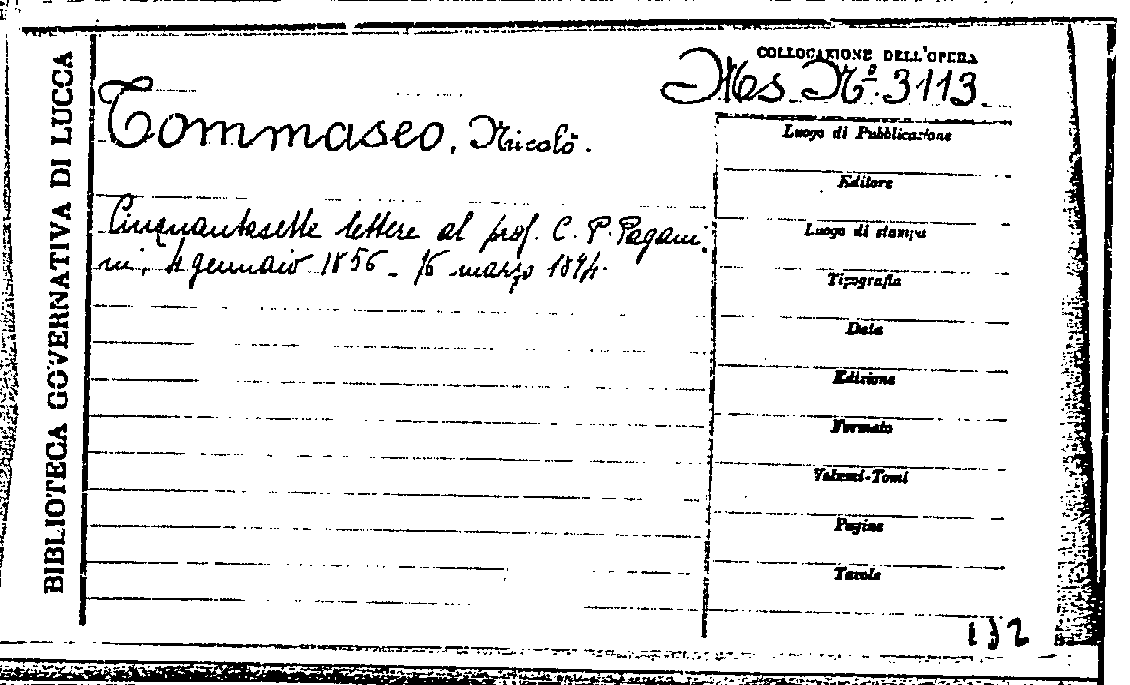 BIBLIOTECA GOVERNATIVA DI LUCCA
COLLOCAZIONE DELL'OPERA
Ms. N.º 3113.
Tommaseo, Nicolò.
Cinquantasette lettere al prof. C. P. Pagani-
ni, 4 gennaio 1856 - 16 marzo
Luogo di Pubblicazione
Editore
Luogo di stampa
Tipografia
Data
Edizione
Formato
Volumi-Tomi
Pagine
Tavole
132